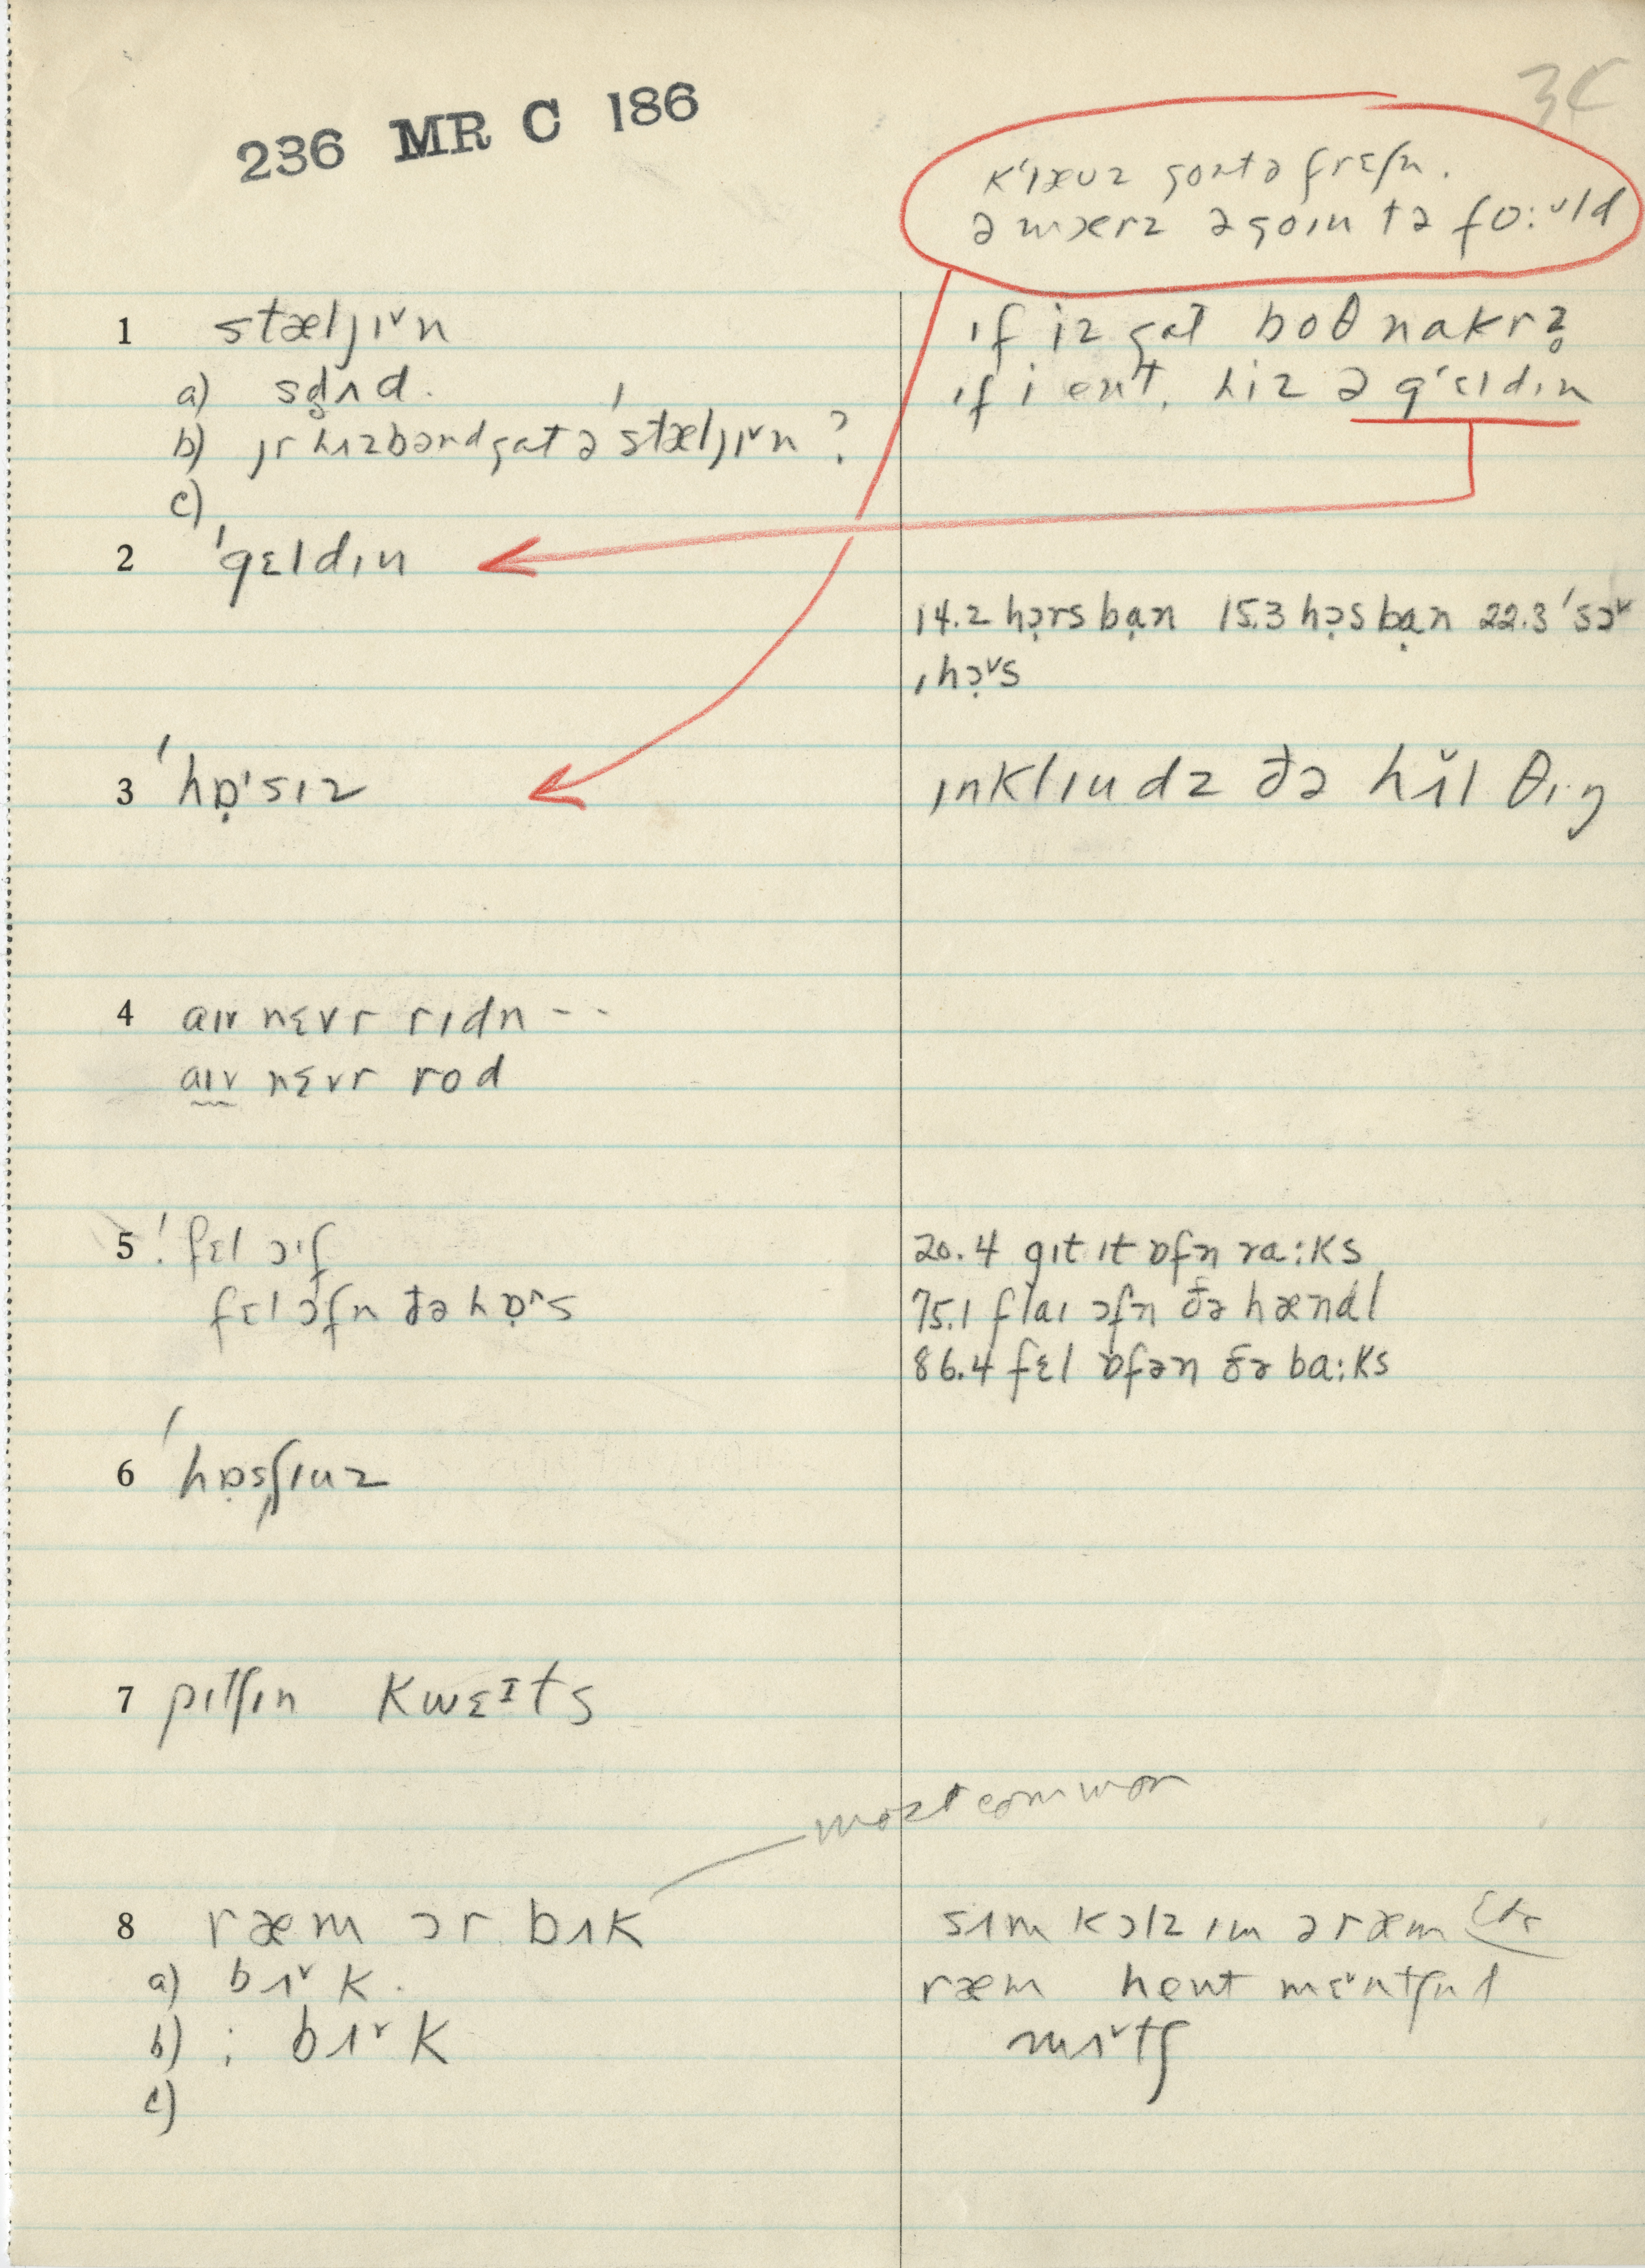 236 MR C 186
1 stæljɪ˅n
a) sd̥ʌd.
b) jr hʌzbənd gat ə ˈstæljɪ˅n ?
c)
ɪf iz gat boθ nakrz̥
ɪf i ent, hiz ə gˈɛldɪn
2 ˈgɛldɪn
14.2 hə̣rs bạn 15.3 hə̣s bạn 22.3 ˈsɔ˅
ˌhɔ̣˅s
3 ˈhɒ̣ˈsɪz
ɪnklɪudz ðə hʌ̌l θɪ·ŋ
4 aɪv nɛvr rɪdn - -
aɪv nɛvr rod
5 ˈfɛl ɔˈf
fɛl ɔfn ðə hɒ̣^s
20.4 gɪt ɪt ɒfn ra:ks
75.1 flaɪ ɔfn ðə hændl
86.4 fɛl ɒfən ðə ba:ks
6 ˈhɒ̣sʃɪuz
7 pɪtʃɪn kwɛɪts
most common
8 ræm ɔr bʌk
a) bʌ˅k.
b) ; bʌ˅k
c)
sʌm kɔlz ɪm ə ræm
ræm hent mɛ˅ntʃnd
mʌ˅tʃ